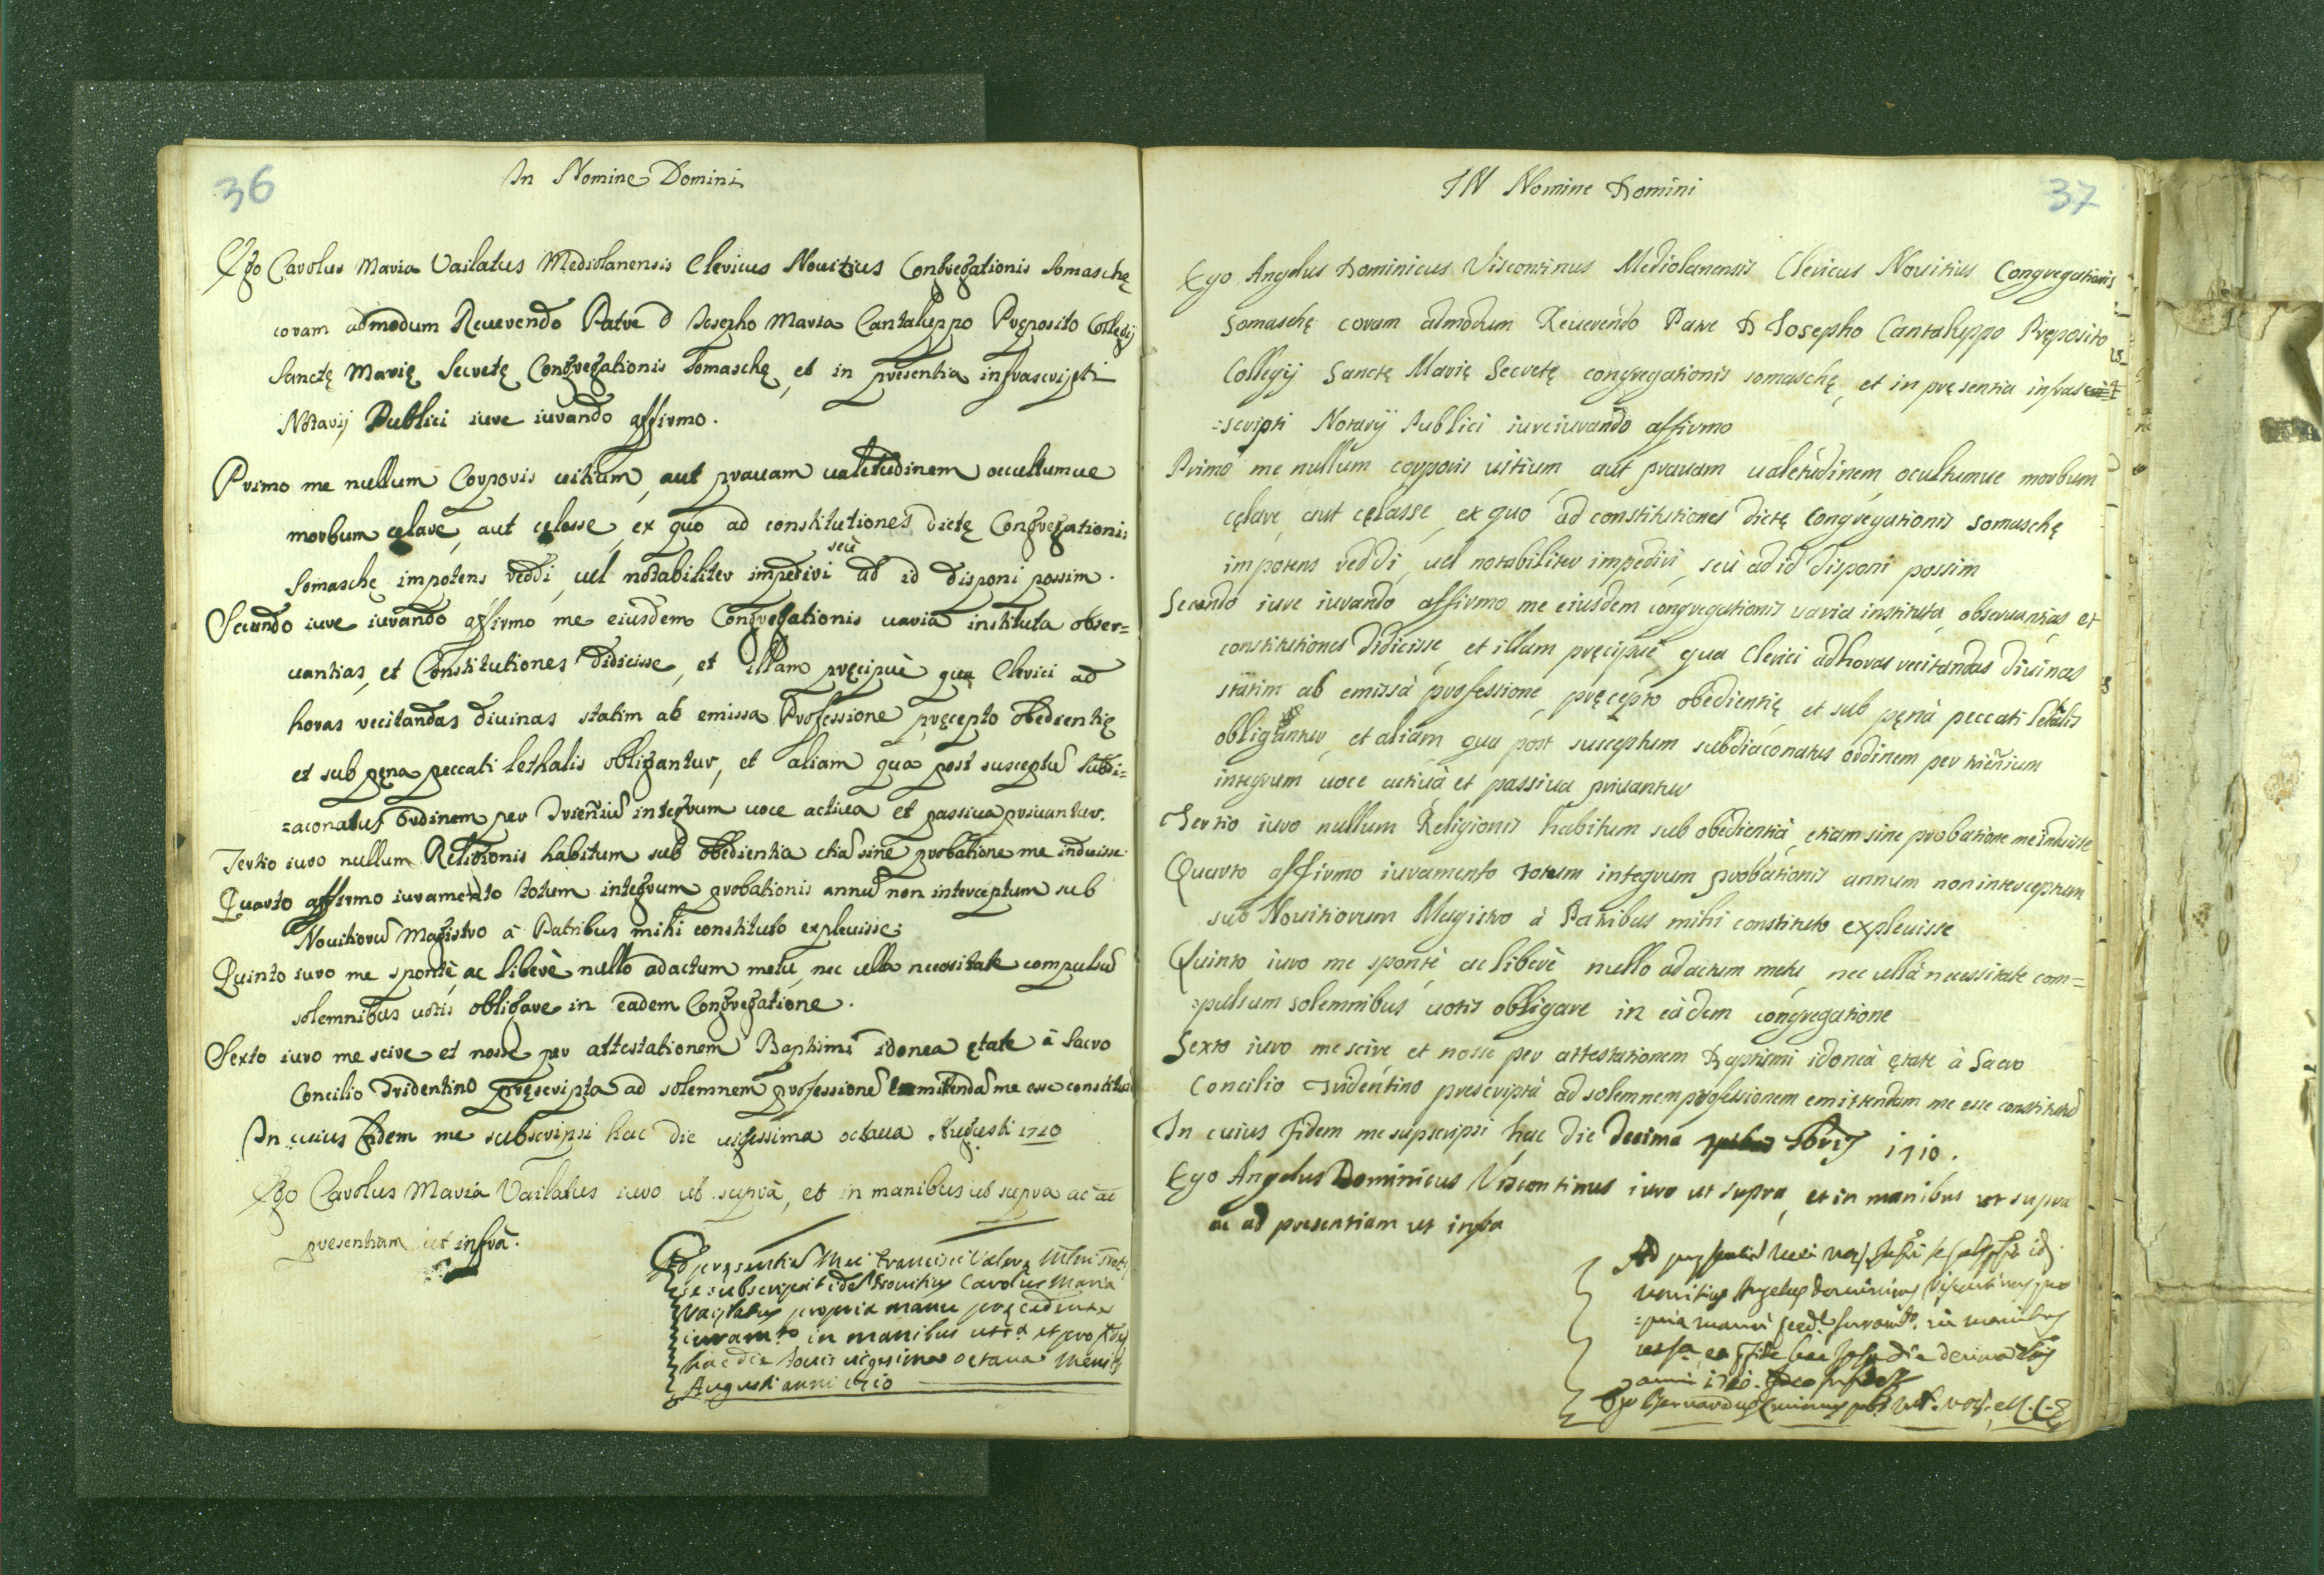 36
In Nomine Domini
Ego Carolus Maria Vailatus Mediolanensis Clericus Nouitius Congregationis Somaschę
coram admodum Reuerendo Patre D Josepho Maria Cantaluppo Pręposito Collegij
Sanctę Marię Secretę Congregationis Somaschę, et in presentia infrascripti
Notarij Publici iure iurando affirmo.
Primo me nullum Corporis uitium, aut prauam ualetudinem occultumue
morbum cęlare, aut cęlasse, ex quo ad constitutiones dictę Congregationis
Somaschę impotens reddi, uel notabiliter impediri seù ad id disponi possim.
Secundo iure iurando affirmo me eiusdem Congregationis uaria instituta obser=
uantias, et Constitutiones didicisse, et illam pręcipuè qua Clerici ad
horas recitandas diuinas statim ab emissa Professione, pręcepto obedientię
et sub pęna peccati lethalis obligantur, et aliam qua post susceptũ Subdi=
=aconatus ordinem per Trieñiũ integrum uoce actiua et passiua priuantur.
Tertio iuro nullum Religionis habitum sub obedientia etiã sine probatione me induisse
Quarto affirmo iuramento totum integrum probationis annũ non interceptum sub
Nouitiorũ Magistro à Patribus mihi constituto expleuisse;
Quinto iuro me spontè, ac liberè nullo adactum metu, nec ulla necessitate compulsũ
solemnibus uotis obligare in eadem Congregatione.
Sexto iuro me scire et nosse per attestationem Baptismi idonea ętate à Sacro
Concilio Tridentino pręscripta ad solemnem professionẽ emitendã me esse constitutũ
In cuius fidem me subscripsi hac die uigessima octaua Augusti 1710
Ego Carolus Maria Vailatus iuro ut suprà, et in manibus ut supra ac ac
presentiam ut infrà.
Ad pręsentiã Mei Francisci
se subscripsit idẽ Nouitius Carolus Maria
Vailatus propria manu pręcedente
iuram.to in manibus ut s.a et pro
hac die Jouis uigesima octaua Mensis
Augusti anni 1710
37
IN Nomine Domini
Ego Angelus Dominicus Viscontinus Mediolanensis Clericus Nouitius Congregationis
Somaschę coram admodum Reuerendo Patre D Josepho Cantaluppo Pręposito
Collegij Sanctę Marię Secretę congregationis somaschę, et in pręsentia infras
=scripti Notarij Publici iureiurando affirmo
Primo me nullum corporis uitium, aut prauam ualetudinem, ocultumue morbum
cęlare, aut cęlasse, ex quo ad constitutiones dictę Congregationis somaschę
impotens reddi, uel notabiliter impediri, seù ad id disponi possim
Secundo iure iurando affirmo me eiusdem congregationis uaria instituta, obseruantias, et
constitutiones didicisse, et illam pręcipuè qua Clerici ad horas recitandas diuinas
statim ab emissà professione, pręcepto obedientię, et sub pęnà peccati letalis
obligantur, et aliam qua post susceptum subdiaconatus ordinem per trieñium
integrum uoce actiuà et passiua priuantur
Tertio iuro nullum Religionis habitum sub obedientià, etiam sine probatione me induisse
Quarto affirmo iuramento totum integrum probationis annum non interceptum
sub Nouitiorum Magistro à Patribus mihi constituto expleuisse
Quinto iuro me spontè ac liberè nullo adactum metu, nec ullà necessitate com=
=pulsum solemnibus uotis obligare in eàdem congregatione
Sexto iuro me scire et nosse per attestationem Baptismi idoneà ętate à Sacro
Concilio Tridentino prescriptà ad solemnem professionem emittendam me esse constitutũ
In cuius fidem me supscripsi hac die decima 1710.
Ego Angelus Dominicus Viscontinus iuro ut supra, et in manibus ut supra
ac ad presentiam ut infra
Ad
nouitius Angelus Dominicus Viscontinus pro
=pria manu in manibus
die decima
anni 1710.
Ego Bernardus